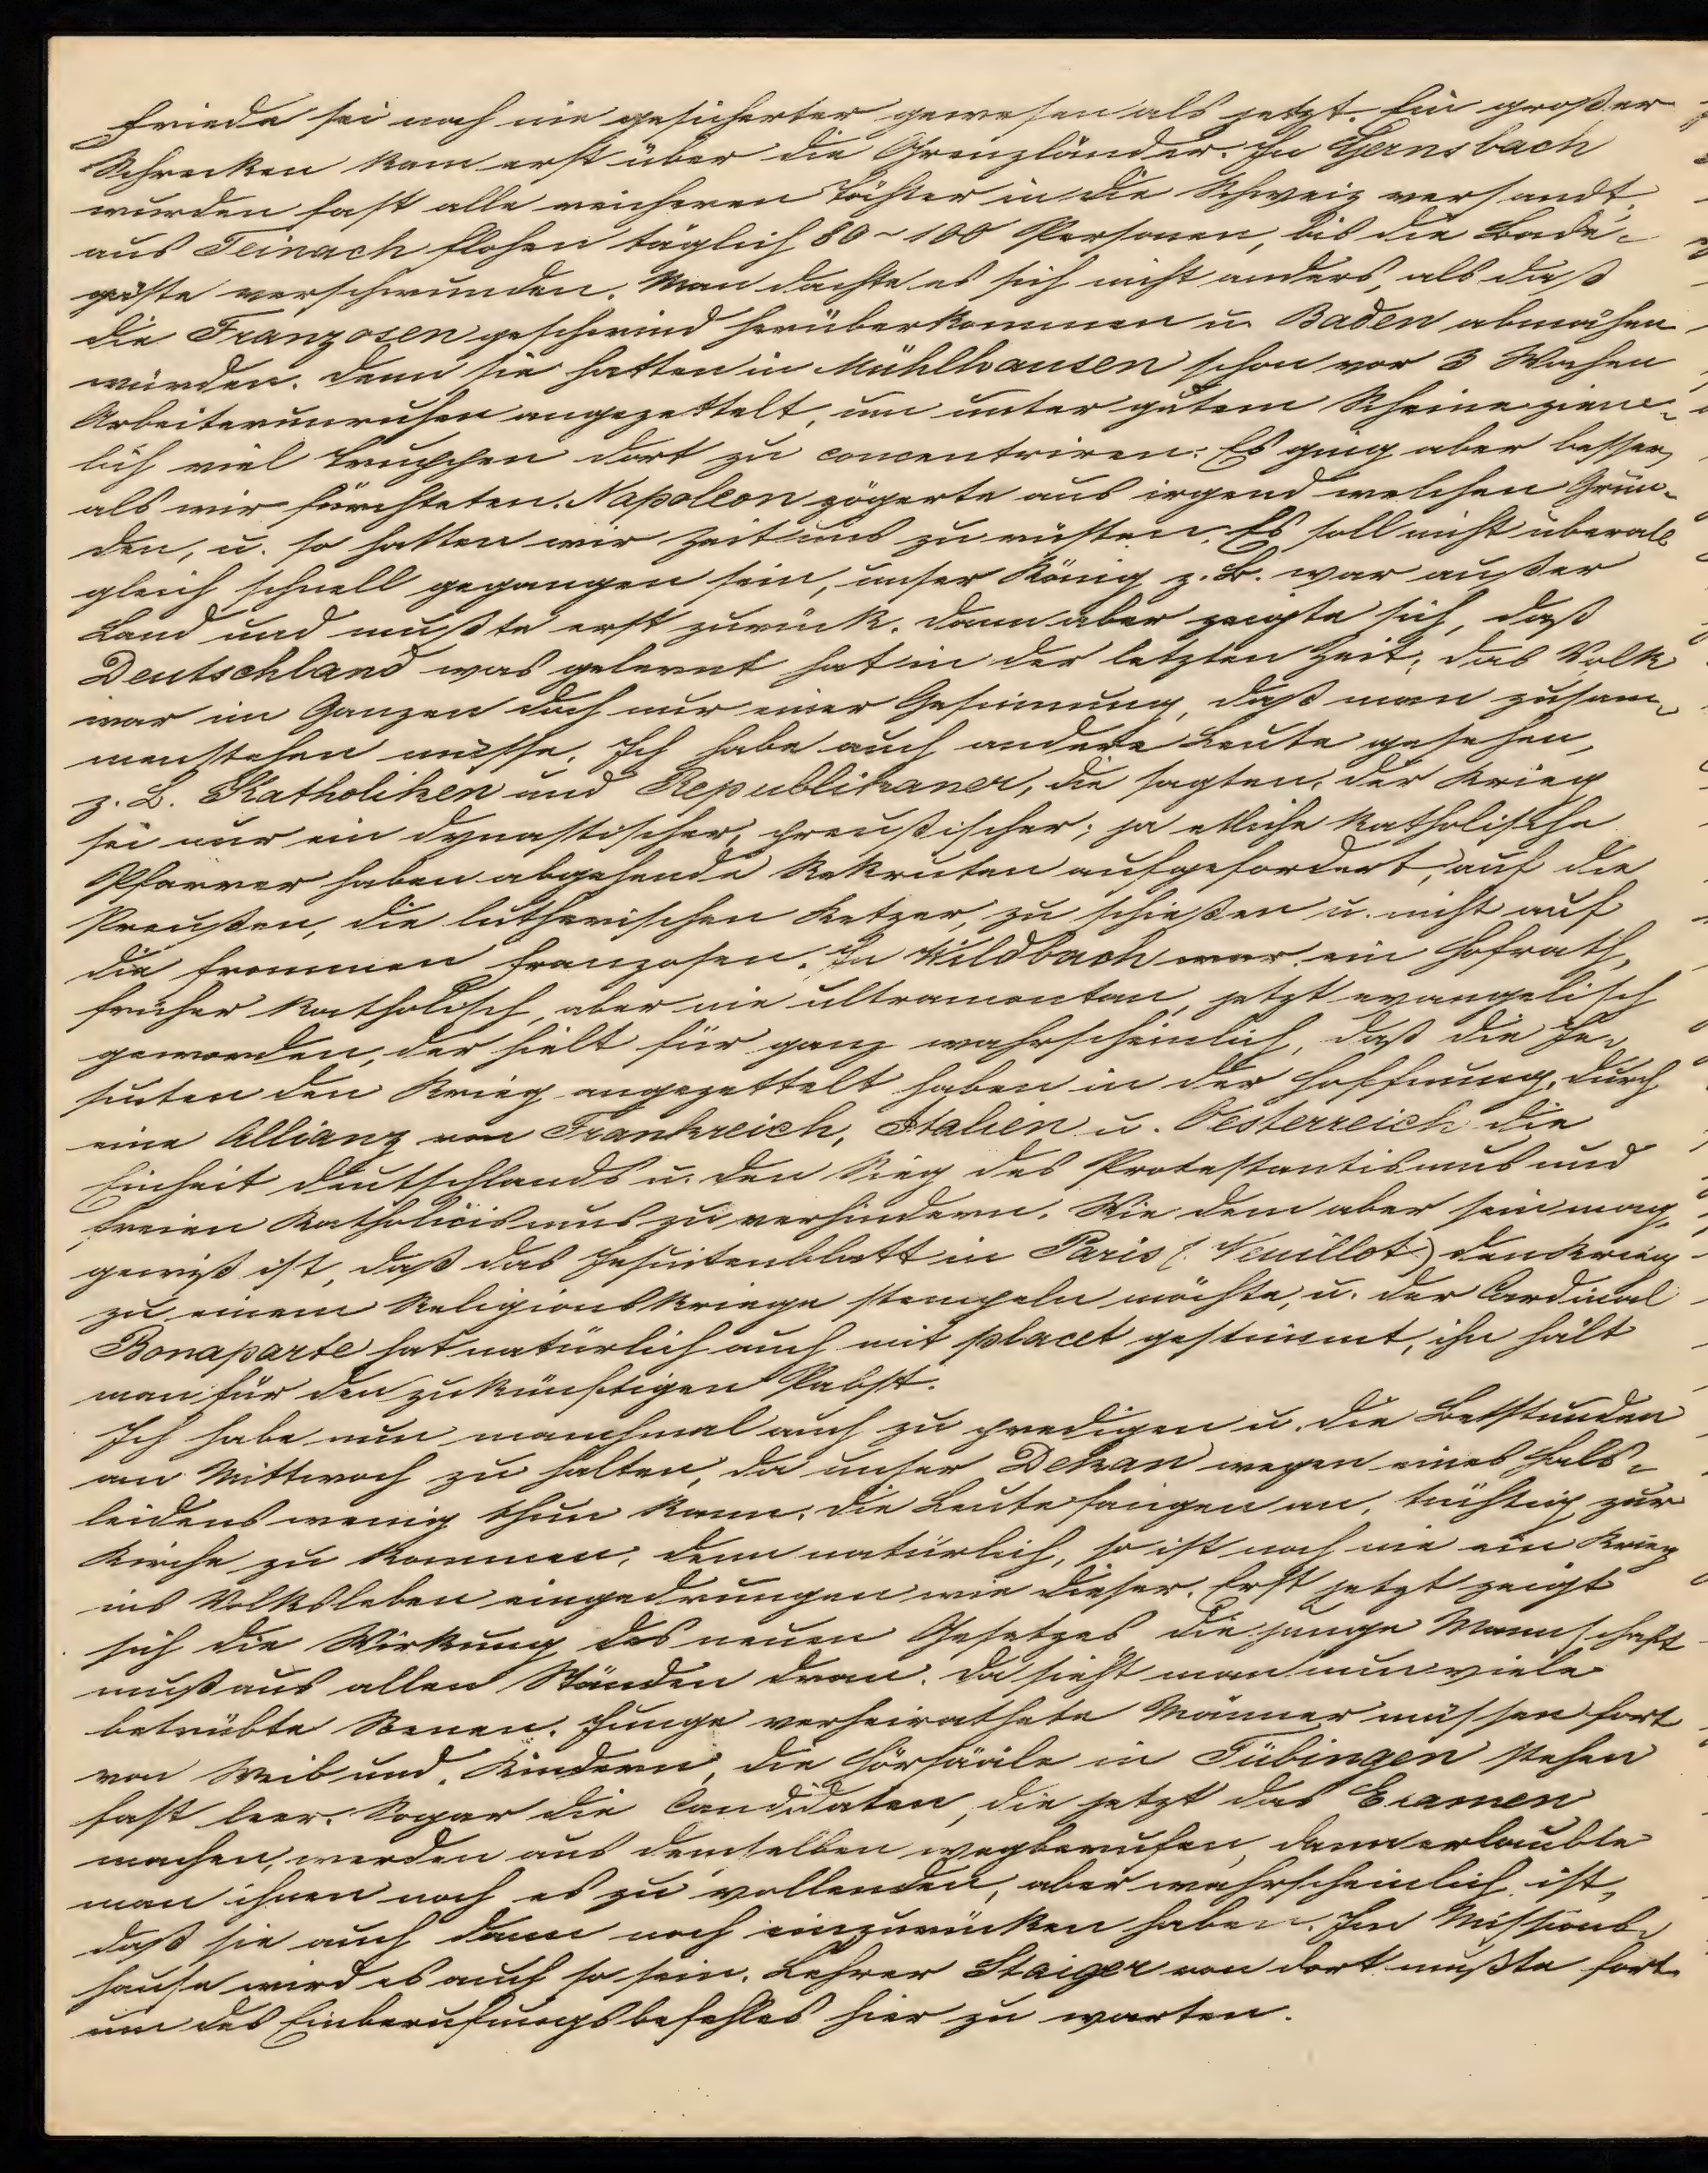 Friede sei noch nie gesicherter gewesen als jetzt. Ein großer
Schrecken kam erst über die Grenzländer. In Gernsbach
wurden fast alle reicheren Töchter in die Schweiz versandt,
aus Teinach flohen täglich 80-100 Personen, bis die Bade-
gäste verschwunden. Man dachte es sich nicht anders, als daß
die Franzosen geschwind herüberkommen u. Baden abmähen
würden. Denn sie hatten in Mühlhausen schon vor 3 Wochen
Arbeiterunruhen angezettelt, um unter gutem Scheine ziem-
lich viel Truppen dort zu concentriren. Es ging aber besser,
als wir fürchteten. Napoleon zögerte aus irgend welchen Grün-
den, u. so hatten wir Zeit uns zu rüsten. Es soll nicht überall
gleich schnell gegangen sein, unser König z. B. war außer
Land und mußte erst zurück. Dann aber zeigte sich, daß
Deutschland was gelernt hat in der letzten Zeit; das Volk
war im Ganzen doch nur einer Gesinnung, daß man zusam-
menstehen müsse. Ich habe auch andere Leute gesehen,
z. B. Katholiken und Republikaner, die sagten, der Krieg
sei nur ein dynastischer, preußischer; ja etliche katholische
Pfarrer haben abgehende Rekruten aufgefordert, auf die
Preußen, die lutherischen Ketzer, zu schießen u. nicht auf
die frommen Franzosen. In Wildbach war ein Hofrath,
früher katholisch, aber nie ultramontan, jetzt evangelisch
geworden, der hielt für ganz wahrscheinlich, daß die Je-
suiten den Krieg angezettelt haben in der Hoffnung, durch
eine Allianz von Frankreich, Italien u. Oesterreich die
Einheit Deutschlands u. den Sieg des Protestantismus und
freien Katholicismus zu verhindern. Wie dem aber sein mag,
gewiß ist, daß das Jesuitenblatt in Paris (Veuillot) den Krieg
zu einem Religionskriege stempeln möchte, u. der Cardinal
Bonaparte hat natürlich auch mit placet gestimmt, ihn hält
man für den zukünftigen Pabst.
Ich habe nun manchmal auch zu predigen u. die Betstunden
am Mittwoch zu halten, da unser Dekan wegen eines Hals-
leidens wenig thun kann. Die Leute fangen an, tüchtig zur
Kirche zu kommen, denn natürlich, so ist noch nie ein Krieg
ins Volksleben eingedrungen wie dieser. Erst jetzt zeigt
sich die Wirkung des neuen Gesetzes, die junge Mannschaft
muß aus allen Ständen dran. Da sieht man nun viele
betrübte Scenen. Junge verheirathete Männer müssen fort
von Weib und Kindern, die Hörsääle in Tübingen stehen
fast leer. Sogar die Candidaten, die jetzt das Examen
machen, werden aus demselben wegberufen, dann erlaubte
man ihnen noch es zu vollenden, aber wahrscheinlich ist,
daß sie auch dann noch einzurücken haben. Im Missions-
hause wird es auch so sein. Lehrer Staiger von dort mußte fort
um des Einberufungsbefehles hier zu warten.